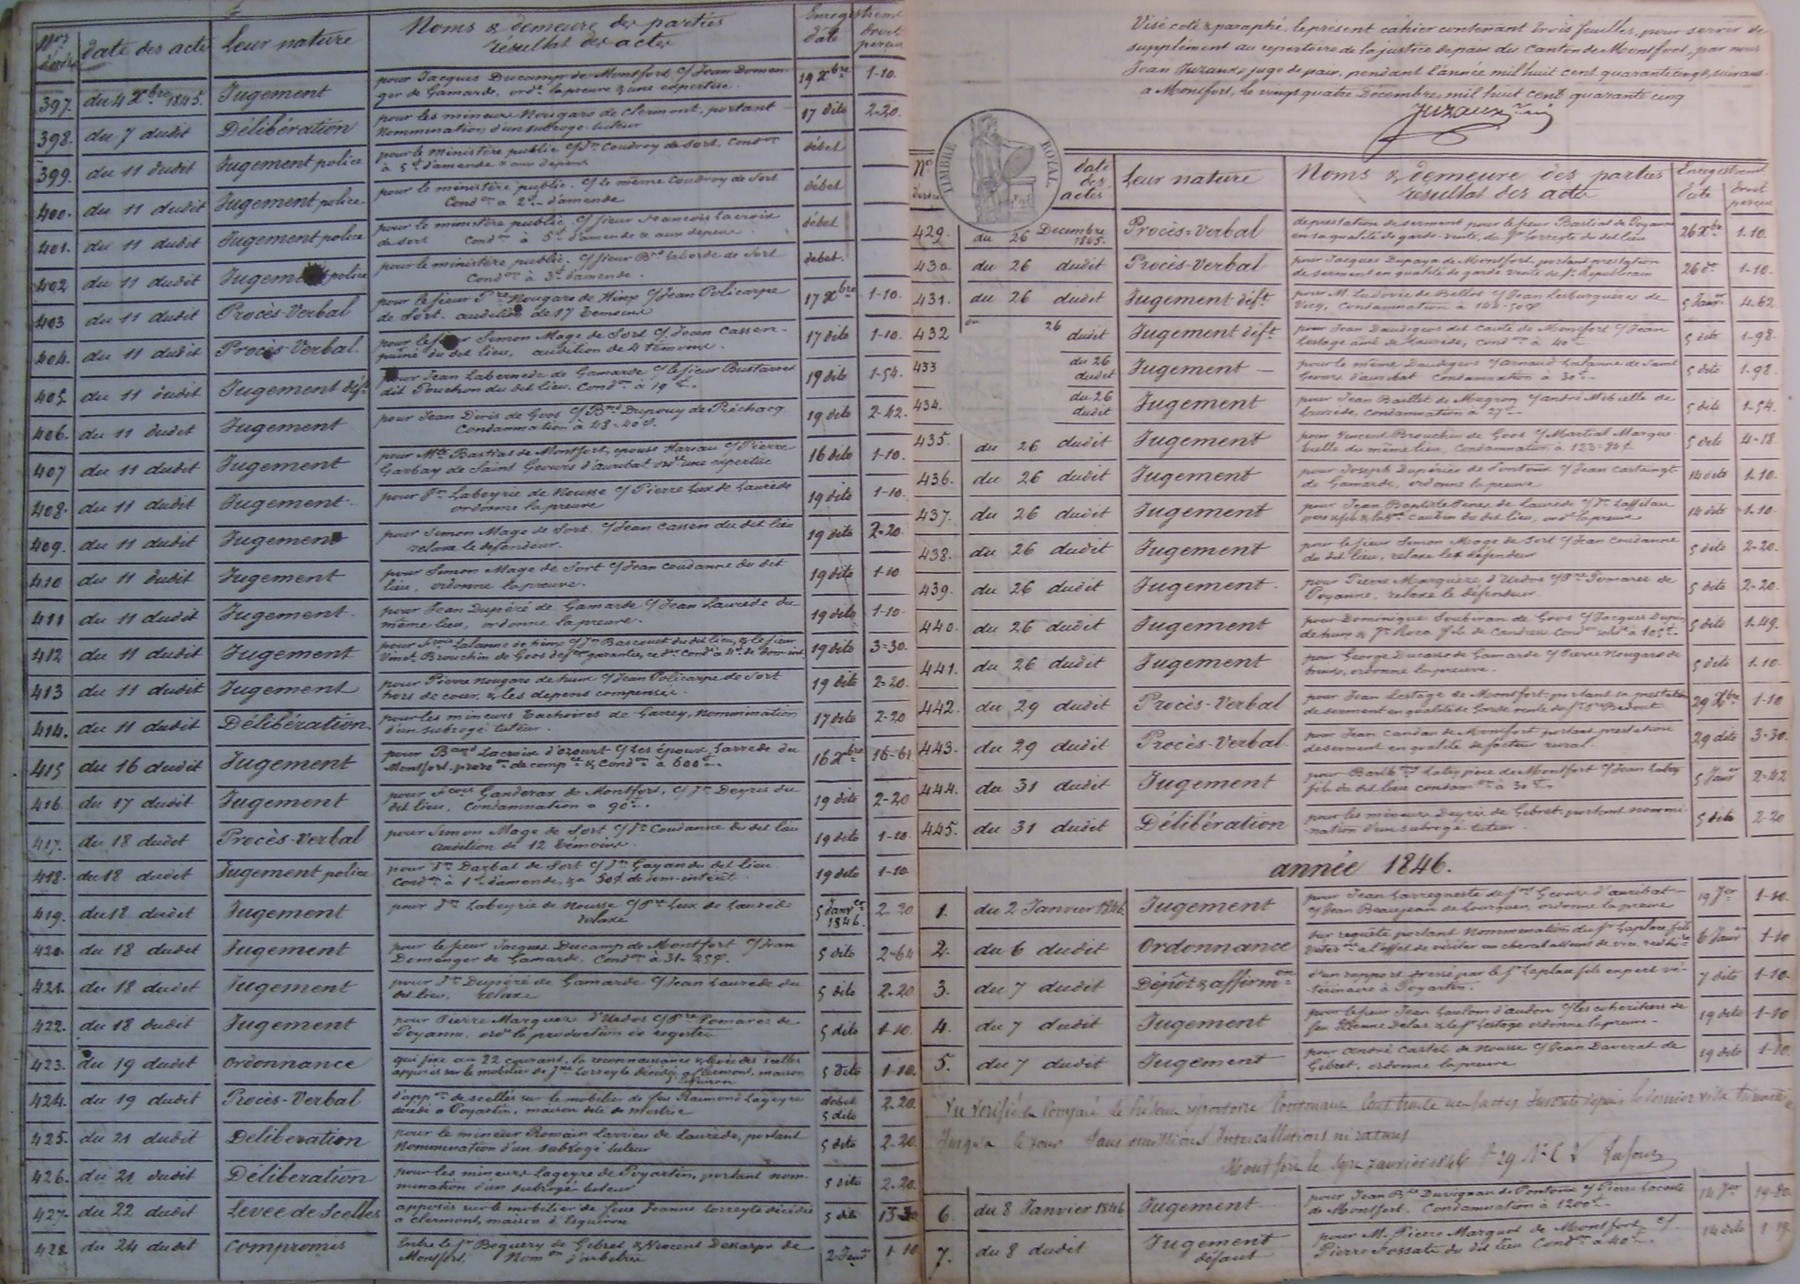 Nos d'ordre date des actes Leur nature Noms & demeure des parties résultat des actes Enregistrement date droit perçu
397. du 4 Xbre 1845. Jugement pour Jacques Ducamp de Montfort c/ Jean Domen- 19 Xbre 1-10.
ger de Gamarde, ordt la preuve & une expertise.
398. du 7 dudit Délibération pour les mineurs Nougaro de Clermont, portant 17 dito 2-20.
Nommination d'un subrogé tuteur
399. du 11 dudit Jugement police pour le ministère public c/ Jn Coudroy de Sort. Condon débet
à 5f d'amende & aux dépens
400. du 11 dudit Jugement police pour le ministère public. c/ le même Coudroy de Sort débet
Condon à 2f d'amende
401. du 11 dudit Jugement police pour le ministère public c/ sieur François Lacroix débet
de Sort Condon à 5f d'amende & aux dépens.
402 du 11 dudit Jugement police pour le ministère public. c/ sieur Bd Laborde de Sort débet.
Condon à 3f d'amende.
403 du 11 dudit Procès-Verbal pour le sieur Pre Nougaro de Hinx c/ Jean Policarpe 17 Xbre 1-10.
de Sort. audition de 17 témoins
404. du 11 dudit Procès-Verbal. pour le sieur Simon Mage de Sort c/ Jean Cassen- 17 dito 1-10.
du dit lieu, audition de 4 témoins.
405. du 11 dudit Jugement déft pour Jean Labernede de Gamarde c/ le sieur Bustarret 19 dito 1-54.
dit Pouchon du dit lieu. Condon à 19f
406. du 11 dudit Jugement pour Jean Doris de Goos c/ Bnd Dupouy de Préchacq 19 dito 2-42.
Condamnation à 48-40c.
407 du 11 dudit Jugement pour Mie Bastiat de Montfort, épouse c/ Pierre 16 dito 1-10.
Garbay de Saint Geours d'auribat ordt une expertise
408. du 11 dudit Jugement pour Jn Labeyrie de Nousse c/ Pierre Lux de Laurède 19 dito 1-10.
ordonne la preuve
409. du 11 dudit Jugement pour Simon Mage de Sort. c/ Jean Cassen du dit lieu 19 dito 2-20.
relaxe le défendeur.
410 du 11 dudit Jugement pour Simon Mage de Sort c/ Jean Coudanne du dit 19 dito 1-10
lieu, ordonne la preuve.
411 du 11 dudit Jugement. pour Jean Dupéré de Gamarde c/ Jean Laurede du 19 dito 1-10.
même lieu, ordonne la preuve.
412 du 11 dudit Jugement pour Lalanne de hinx c/ Jn Bascouet du dit lieu, & le sieur 19 dito 3-30.
Vinct Brouchin de Goos
413 du 11 dudit Jugement pour Pierre nougaro de hinx c/ Jean Policarpe de Sort 19 dito 2-20.
hors de cour, & les dépens compensés.
414. du 11 dudit Délibération pour les mineurs Tachoires de Garrey, Nommination 17 dito 2-20
d'un subrogé tuteur.
415 du 16 dudit Jugement pour Bnd Lacroix d'ozourt c/ les époux Larrede du 16 Xbre 16-61.
Montfort, & Condon à 600f
416. du 17 dudit Jugement pour Ganderax de Montfort, c/ Jn Deyres du 19 dito 2-20
dit lieu, Condamnation à 90f.
417. du 18 dudit Procès-Verbal pour Simon Mage de Sort, c/ Jn Coudanne du dit lieu 19 dito 1-10.
audition de 12 témoins.
418. du 18 dudit Jugement police pour Jn Darbat de Sort c/ Jn Gayan du dit lieu 19 dito 1-10.
Condon à 1f d'amende, & à 50c de dom-intérêt.
419. du 18 dudit Jugement pour Jn Labeyrie de Nousse c/ Pre Lux de Laurède 5 Janver 1846. 2-20
relaxe
420. du 18 dudit Jugement pour le sieur Jacques Ducamp de Montfort c/ Jean 5 dito 2-64
Domenger de Gamarde, Condon à 31-25c.
421. du 18 dudit Jugement pour Jn Dupéré de Gamarde c/ Jean Laurede du 5 dito 2-20
dit lieu, relaxe
422. du 18 dudit Jugement pour Pierre Marquez d'Urdos c/ Pre Pomarez de 5 dito 1-10.
Poyanne, ordt la production de registre
423. du 19 dudit ordonnance qui fixe au 22 courant, la reconnaissance & levée des scellés 5 dito 1-10.
apposés sur le mobilier de Jne Lorreyte décédée à Clermont, maison
d'Esquiron
424. du 19 dudit Procès-Verbal d'appon de scellés sur le mobilier de feu Raimond Lageyre débet 5 dito 2-20.
décédé à Poyartin, maison dite de
425. du 21 dudit Délibération pour le mineur Romain Larrieu de Laurède, portant 5 dito 2-20
Nommination d'un subrogé tuteur
426. du 21 dudit Délibération pour les mineurs Lageyre de Poyartin, portant nom- 5 dito 2-20.
mination d'un subrogé tuteur
427. du 22 dudit Levée de Scellés apposés sur le mobilier de feue Jeanne Lorreyte décédée 5 dito 13-30
à Clermont, maison d'Esquiron
428. du 24 dudit Compromis Entre le Sr Boquery de Gibret & Vincent Descarpe de 2 Janer 1-10
Montfort, Nomon d'arbitres
Visé coté & paraphé, le présent cahier contenant trois feuilles, pour servir de
supplément au répertoire de la justice de paix du Canton de Montfort, par nous
Jean Juzaux, juge de paix, pendant l'année mil huit cent quarante cinq & suivans.
a Montfort, le vingt quatre Décembre mil huit cent quarante cinq
Juzaux
TIMBRE ROYAL
No d'ordre date des actes Leur nature Noms & demeure des parties résultat des actes Enregistrement date droit perçu
429. du 26 Décembre 1845. Procès-Verbal de prestation de serment pour le sieur Bastiat de Poyanne 26 Xbre 1-10.
en sa qualité de garde-vente, du Sr Lorreyte du dit lieu
430. du 26 dudit Procès-Verbal pour Jacques Dupaya de Montfort, portant prestation 26 do 1-10.
de serment en qualité de garde vente de Sr Republicain
431. du 26 dudit Jugement déft pour M. Ludovic de Bellot c/ Jean Lesburguères de 5 Janer 4-62
Vicq, Condamnation à 142-50c
432 du 26 dudit Jugement déft pour Jean Daudigeos dit Cauté de Montfort c/ Jean 5 dito 1-98.
Lestage ainé de Laurède, Condon à 40f
433 du 26 dudit Jugement pour le même Daudigeos c/ arnaud Lalanne de Saint 5 dito 1-98.
Geours d'auribat Condamnation à 30f
434. du 26 dudit Jugement pour Jean Baillet de Mugron c/ andré Mibrelle de 5 dito 1-54.
Laurède, Condamnation à 27f
435. du 26 dudit Jugement pour Vincent Brouchin de Goos c/ Martial Margue- 5 dito 4-18.
bielle du même lieu, Condamnation à 123-80c
436. du 26 dudit Jugement pour Joseph Dupérier de Pontonx c/ Jean Castaingt 14 dito 1-10.
de Gamarde, ordonne la preuve
437. du 26 dudit Jugement pour Jean Baptiste Peres de Laurède c/ Jn Laffitau 14 dito 1-10.
du dit lieu, ordt la preuve
438. du 26 dudit Jugement pour le sieur Simon Mage de Sort c/ Jean Coudanne 5 dito 2-20.
du dit lieu, relaxe le défendeur
439. du 26 dudit Jugement. pour Pierre Marquèze d'Urdos c/ Pre Pomarez de 5 dito 2-20.
Poyanne, relaxe le défendeur.
440. du 26 dudit Jugement pour Dominique Soubiran de Goos c/ Jacques Dupin 5 dito 1-49.
de hinx & Jn Roca fils de Candresse Condon solidre à 105f
441. du 26 dudit Jugement pour George Ducasse de Gamarde c/ Pierre Nougaro de 5 dito 1-10.
hinx, ordonne la preuve.
442. du 29 dudit Procès-Verbal pour Jean Lestage de Montfort, portant sa prestation 29 Xbre 1-10
de serment en qualité de Garde vente de Sr Bedout
443. du 29 dudit Procès-Verbal pour Jean Candau de Montfort portant prestation 29 dito 3-30.
de serment en qualité de facteur rural.
444. du 31 dudit Jugement pour Barthmy Labey père de Montfort c/ Jean Labey 5 Janer 2-42
fils du dit lieu condamon à 30f
445. du 31 dudit Délibération pour les mineurs Deyris de Gibret, portant nommi- 5 dito 2-20
nation d'un subrogé tuteur.
année 1846.
1. du 2 Janvier 1846 Jugement pour Jean Larregneste de St Geours d'auribat- 19 Jer 1-10.
c/ Jean Beaujean de Lourquen, ordonne la preuve
2. du 6 dudit Ordonnance sur requête portant Nommination du Sr Laplace fils 6 Janer 1-10
à l'effet de visiter un cheval atteint de vice redhibre
3. du 7 dudit Dépôt & affirmon d'un rapport dressé par le Sr Laplace fils expert vé- 7 dito 1-10.
térinaire à Poyartin.
4. du 7 dudit Jugement pour le sieur Jean Gaulom d'audon c/ les cohéritiers de 19 dito 1-10
feu Etienne Delas & le Sr Lestage ordonne la preuve-
5. du 7 dudit Jugement pour andré Castel de Nousse c/ Jean Daverat de 19 dito 1-10.
Gibret, ordonne la preuve
Vu vérifié & Comparé le présent répertoire Contenant Cent trente neuf actes Inscrits depuis le dernier visa trimestriel
Jusqu'à ce jour sans omissions Intercallations ni ratures
Montfort le Janvier 1846 fo 29 No Lafour
6. du 8 Janvier 1846 Jugement pour Jean Bte Duvignau de Pontonx c/ Pierre Lacoste 14 Jer 19-80.
de Montfort. Condamnation à 1200f
7. du 8 dudit Jugement défaut pour M. Pierre Marquet de Montfort, c/ 14 dito 1-
Pierre Fossats du dit lieu Condon à 40f